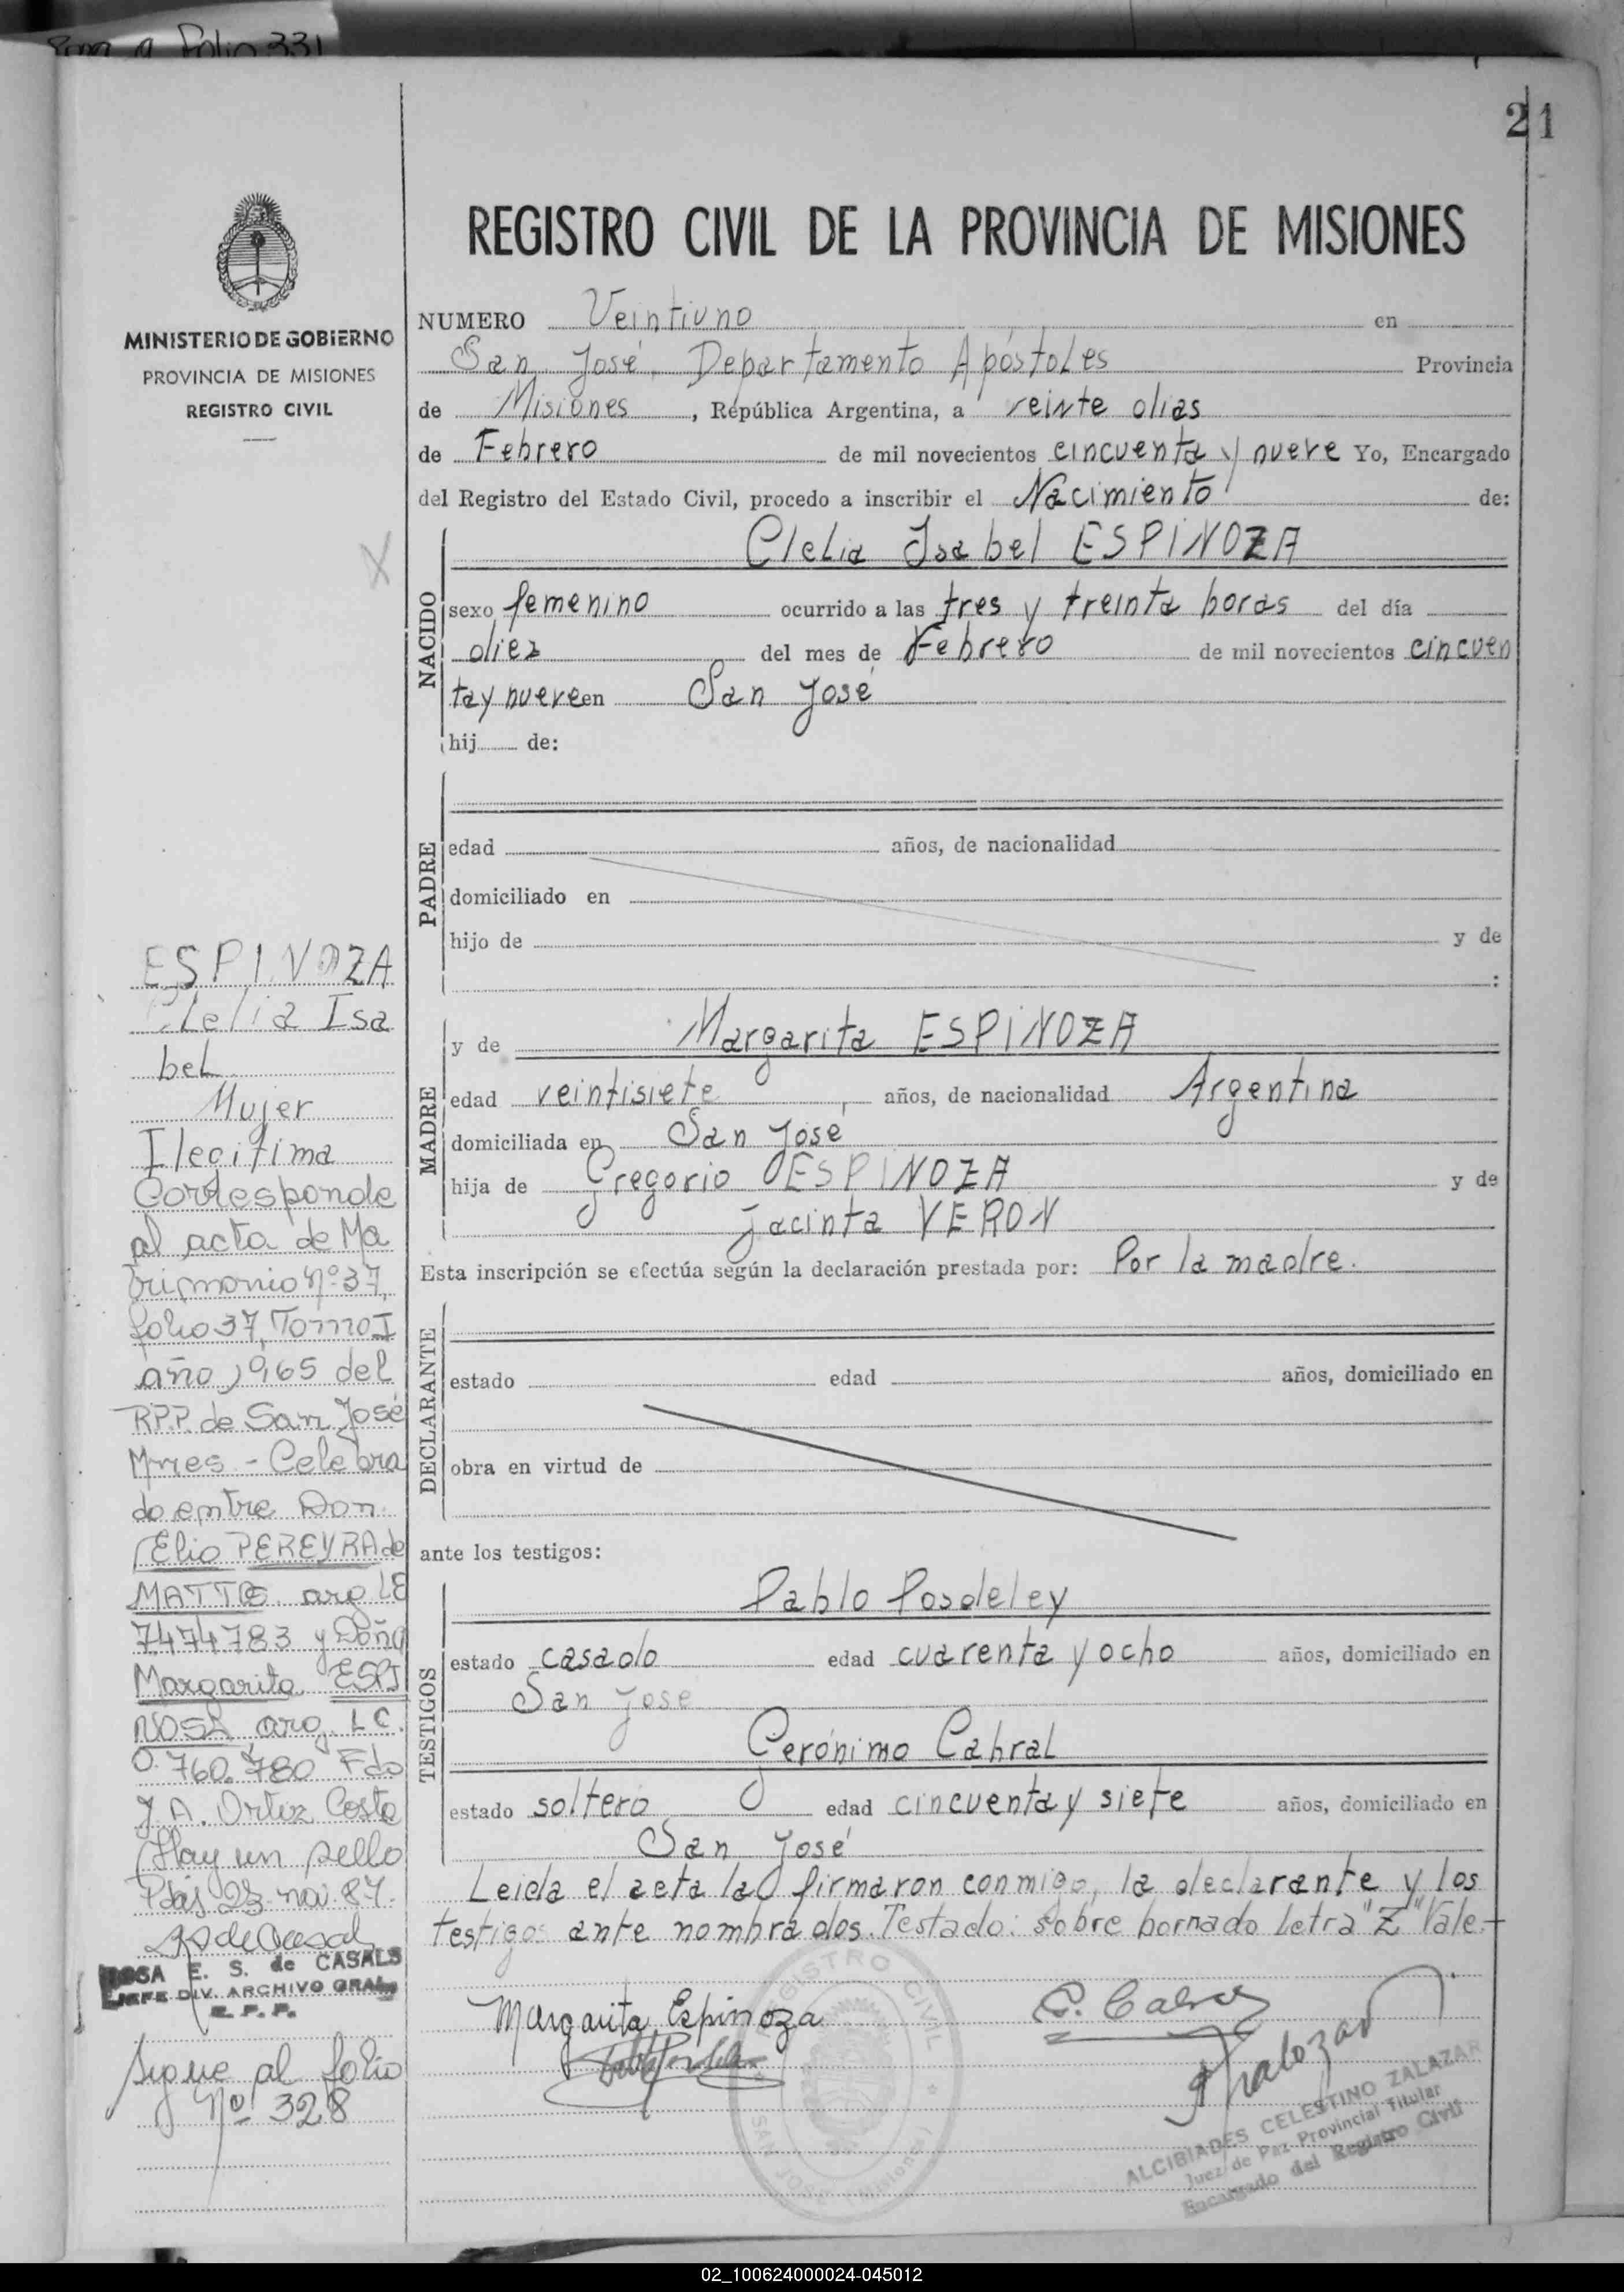 Folio 331
21
MINISTERIO DE GOBIERNO
PROVINCIA DE MISIONES
REGISTRO CIVIL
REGISTRO CIVIL DE LA PROVINCIA DE MISIONES
NUMERO Veintiuno en
San José Departamento Apóstoles Provincia
de Misiones, República Argentina, a veinte dias
de Febrero de mil novecientos cincuenta y nueve Yo, Encargado
del Registro del Estado Civil, procedo a inscribir el Nacimiento de:
NACIDO
Clelia Isabel ESPINOZA
sexo femenino ocurrido a las tres y treinta horas del día
diez del mes de Febrero de mil novecientos cincuen
ta y nueve en San José
hij de:
PADRE
edad años, de nacionalidad
domiciliado en
hijo de y de
:
MADRE
y de Margarita ESPINOZA
edad veintisiete, años, de nacionalidad Argentina
domiciliada en San José
hija de Gregorio ESPINOZA y de
Jacinta VERON
Esta inscripción se efectúa según la declaración prestada por: Por la madre.
DECLARANTE
estado edad años, domiciliado en
obra en virtud de
ante los testigos:
TESTIGOS
Pablo Posdeley
estado casado edad cuarenta y ocho años, domiciliado en
San Jose
Gerónimo Cabral
estado soltero edad cincuenta y siete años, domiciliado en
San José
Leida el acta la firmaron conmigo, la declarante y los
testigos ante nombrados. Testado: sobre borrado Letra "Z" Vale.-
Margarita Espinoza
G. Cabral
REGISTRO CIVIL
SAN JOSE (Misiones)
ALCIBIADES CELESTINO ZALAZAR
Juez de Paz Provincial Titular
Encargado del Registro Civil
ESPINOZA
Clelia Isa
bel
Mujer
Ilegitima
Corresponde
al acta de Ma
trimonio Nº 37,
folio 37, Tomo I
año 1965 del
R.P.P. de San José
Mnes - Celebra
do entre Don
Elio PEREYRA de
MATTOS arg LE
7474783 y Doña
Margarita ESPI
NOSA arg. LC.
0.760.780 Fdo
J A. Ortiz Costa
Hay un sello
Pdas 23-nov.87.
ROSA E. S. de CASALS
JEFE DIV. ARCHIVO GRAL
R. P. P.
Sigue al folio
Nº 328
02_100624000024-045012